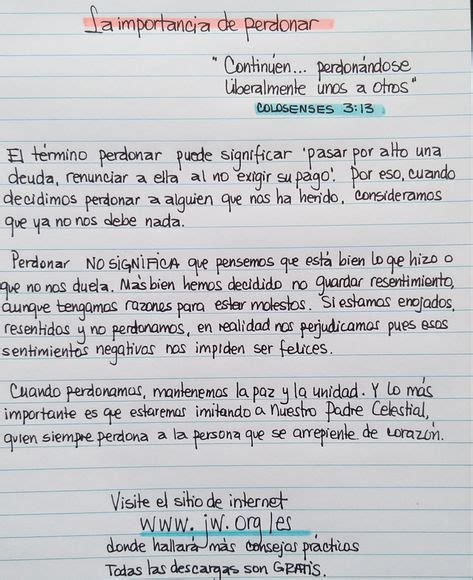 La importancia de perdonar
"Continúen... perdonándose
liberalmente unos a otros"
COLOSENSES 3:13
El término perdonar puede significar 'pasar por alto una
deuda, renunciar a ella al no exigir su pago'. Por eso, cuando
decidimos perdonar a alguien que nos ha herido, consideramos
que ya no nos debe nada.
Perdonar NO SIGNIFICA que pensemos que está bien lo que hizo o
que no nos duela. Más bien hemos decidido no guardar resentimiento,
aunque tengamos razones para estar molestos. Si estamos enojados,
resentidos y no perdonamos, en realidad nos perjudicamos pues esos
sentimientos negativos nos impiden ser felices.
Cuando perdonamos, mantenemos la paz y la unidad. Y lo más
importante es que estaremos imitando a Nuestro Padre Celestial,
quien siempre perdona a la persona que se arrepiente de corazón.
Visite el sitio de internet
www.jw.org/es
donde hallará más consejos prácticos
Todas las descargas son GRATIS.